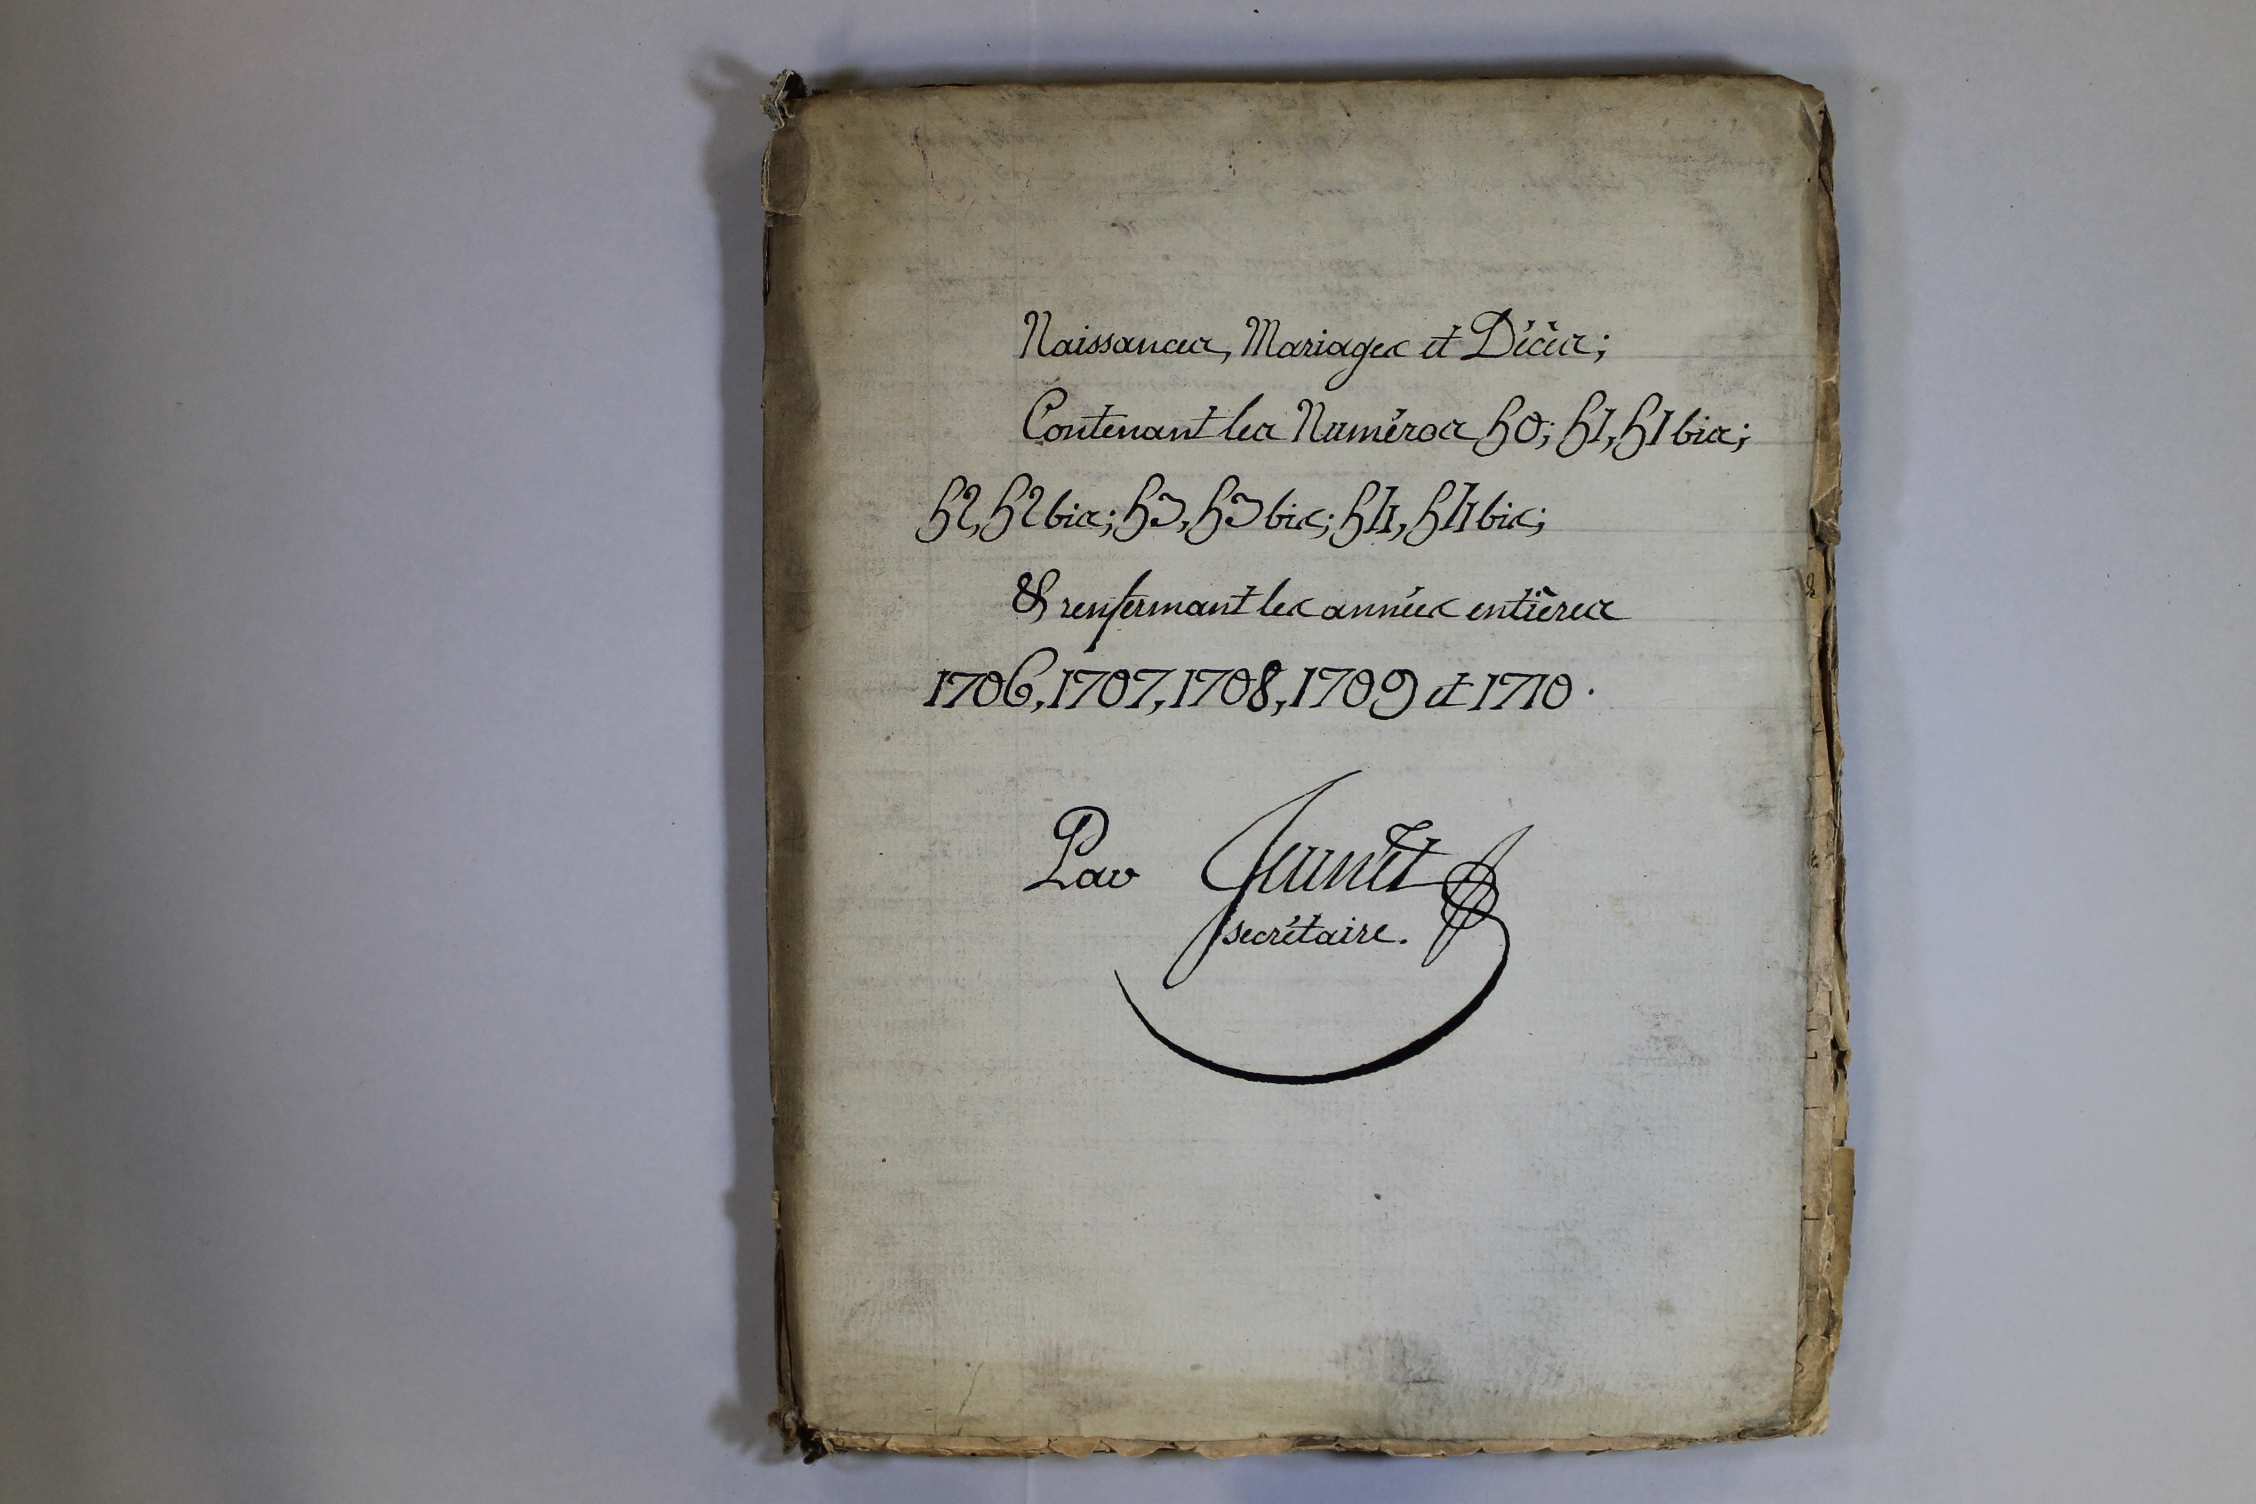 Naissances, Mariages et Décès;
Contenant les Numéros 50; 51, 51 bis;
52, 52 bis; 53, 53 bis; 54, 54 bis;
& renfermant les années entières
1706, 1707, 1708, 1709 et 1710.
Par Jeunet
secrétaire.